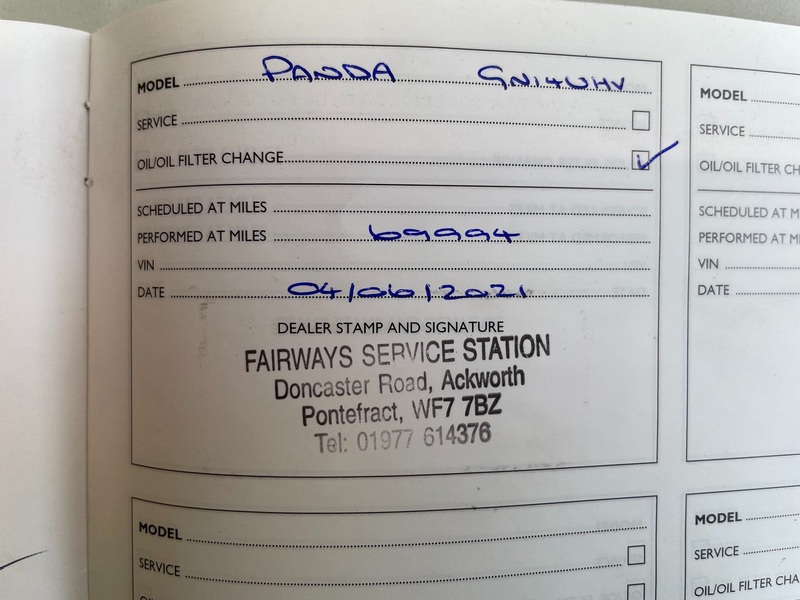 MODEL PANDA GN14UHV
SERVICE
OIL/OIL FILTER CHANGE
SCHEDULED AT MILES
PERFORMED AT MILES 69994
VIN
DATE 04/06/2021
DEALER STAMP AND SIGNATURE
FAIRWAYS SERVICE STATION
Doncaster Road, Ackworth
Pontefract, WF7 7BZ
Tel: 01977 614376
MODEL
SERVICE
OIL/OIL FILTER CH
SCHEDULED AT M
PERFORMED AT MI
VIN
DATE
MODEL
SERVICE
MODEL
SERVICE
OIL/OIL FILTER CHA